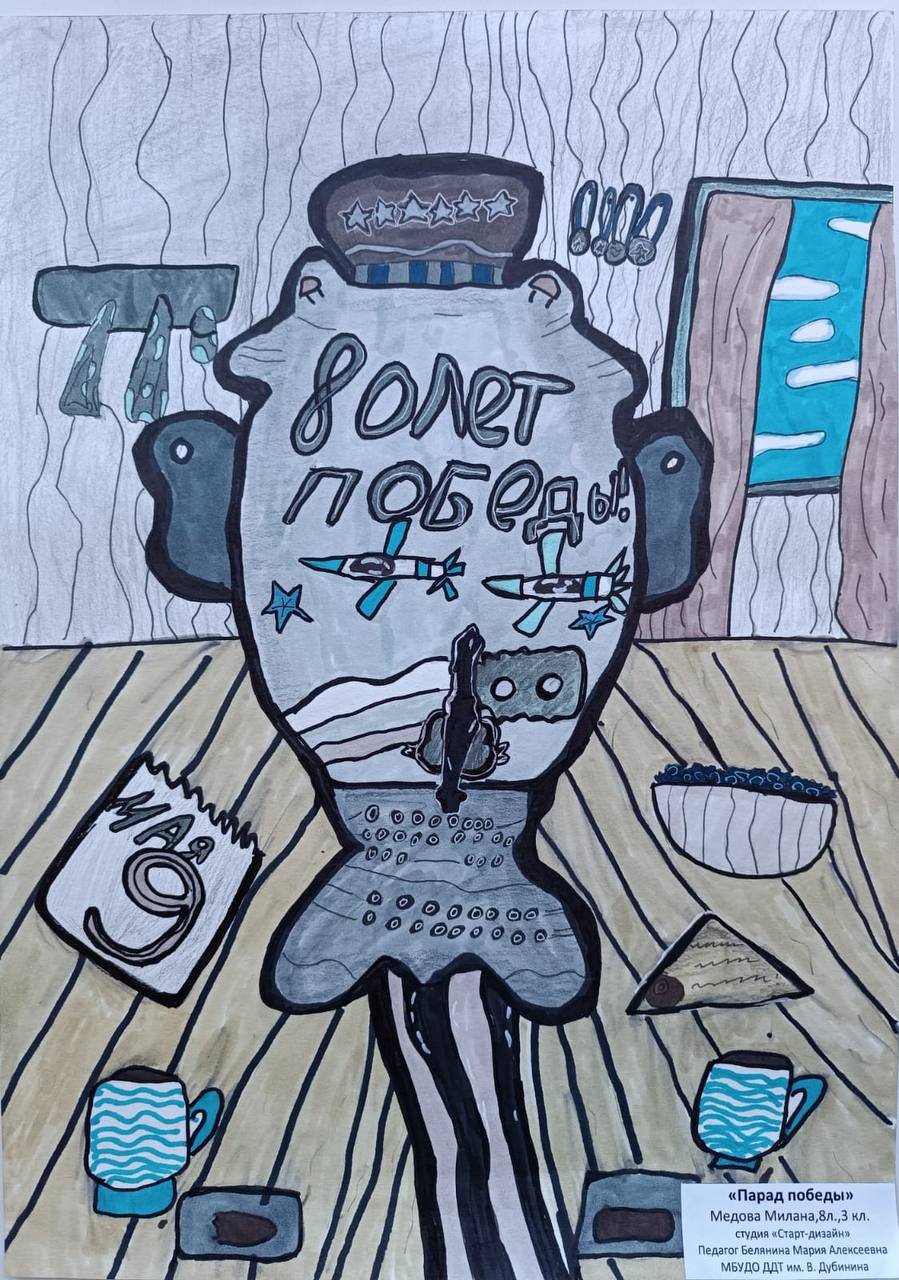 80лет
победы!
МАЯ
9
«Парад победы»
Медова Милана,8л.,3 кл.
студия «Старт-дизайн»
Педагог Белянина Мария Алексеевна
МБУДО ДДТ им. В. Дубинина